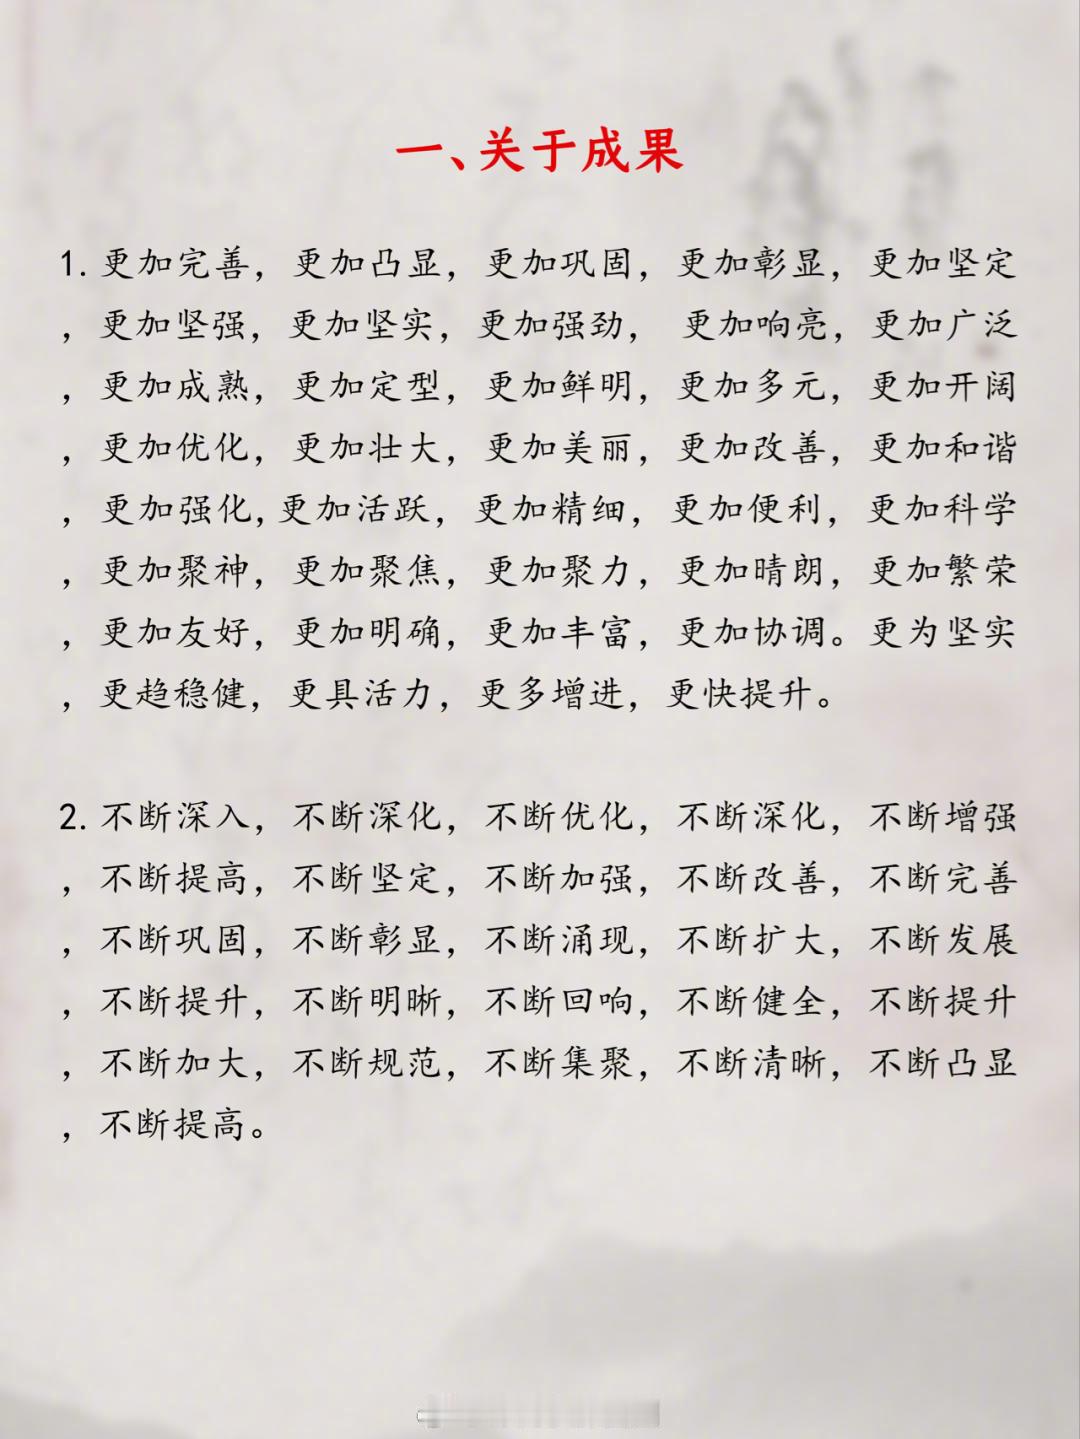 一、关于成果
1. 更加完善，更加凸显，更加巩固，更加彰显，更加坚定
，更加坚强，更加坚实，更加强劲， 更加响亮，更加广泛
，更加成熟，更加定型，更加鲜明，更加多元，更加开阔
，更加优化，更加壮大，更加美丽，更加改善，更加和谐
，更加强化，更加活跃，更加精细，更加便利，更加科学
，更加聚神，更加聚焦，更加聚力，更加晴朗，更加繁荣
，更加友好，更加明确，更加丰富，更加协调。更为坚实
，更趋稳健，更具活力，更多增进，更快提升。
2. 不断深入，不断深化，不断优化，不断深化，不断增强
，不断提高，不断坚定，不断加强，不断改善，不断完善
，不断巩固，不断彰显，不断涌现，不断扩大，不断发展
，不断提升，不断明晰，不断回响，不断健全，不断提升
，不断加大，不断规范，不断集聚，不断清晰，不断凸显
，不断提高。